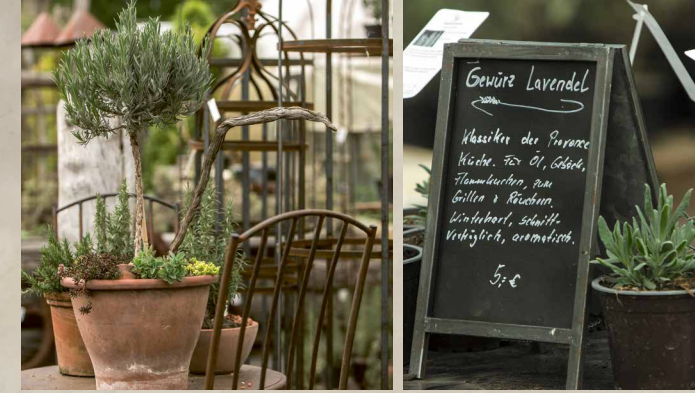 Gewürz Lavendel
Klassiker der Provence
Küche. Für Öl, Gebäck,
Flammkuchen, zum
Grillen & Räuchern.
Winterhart, schnitt-
verträglich, aromatisch.
5,- €